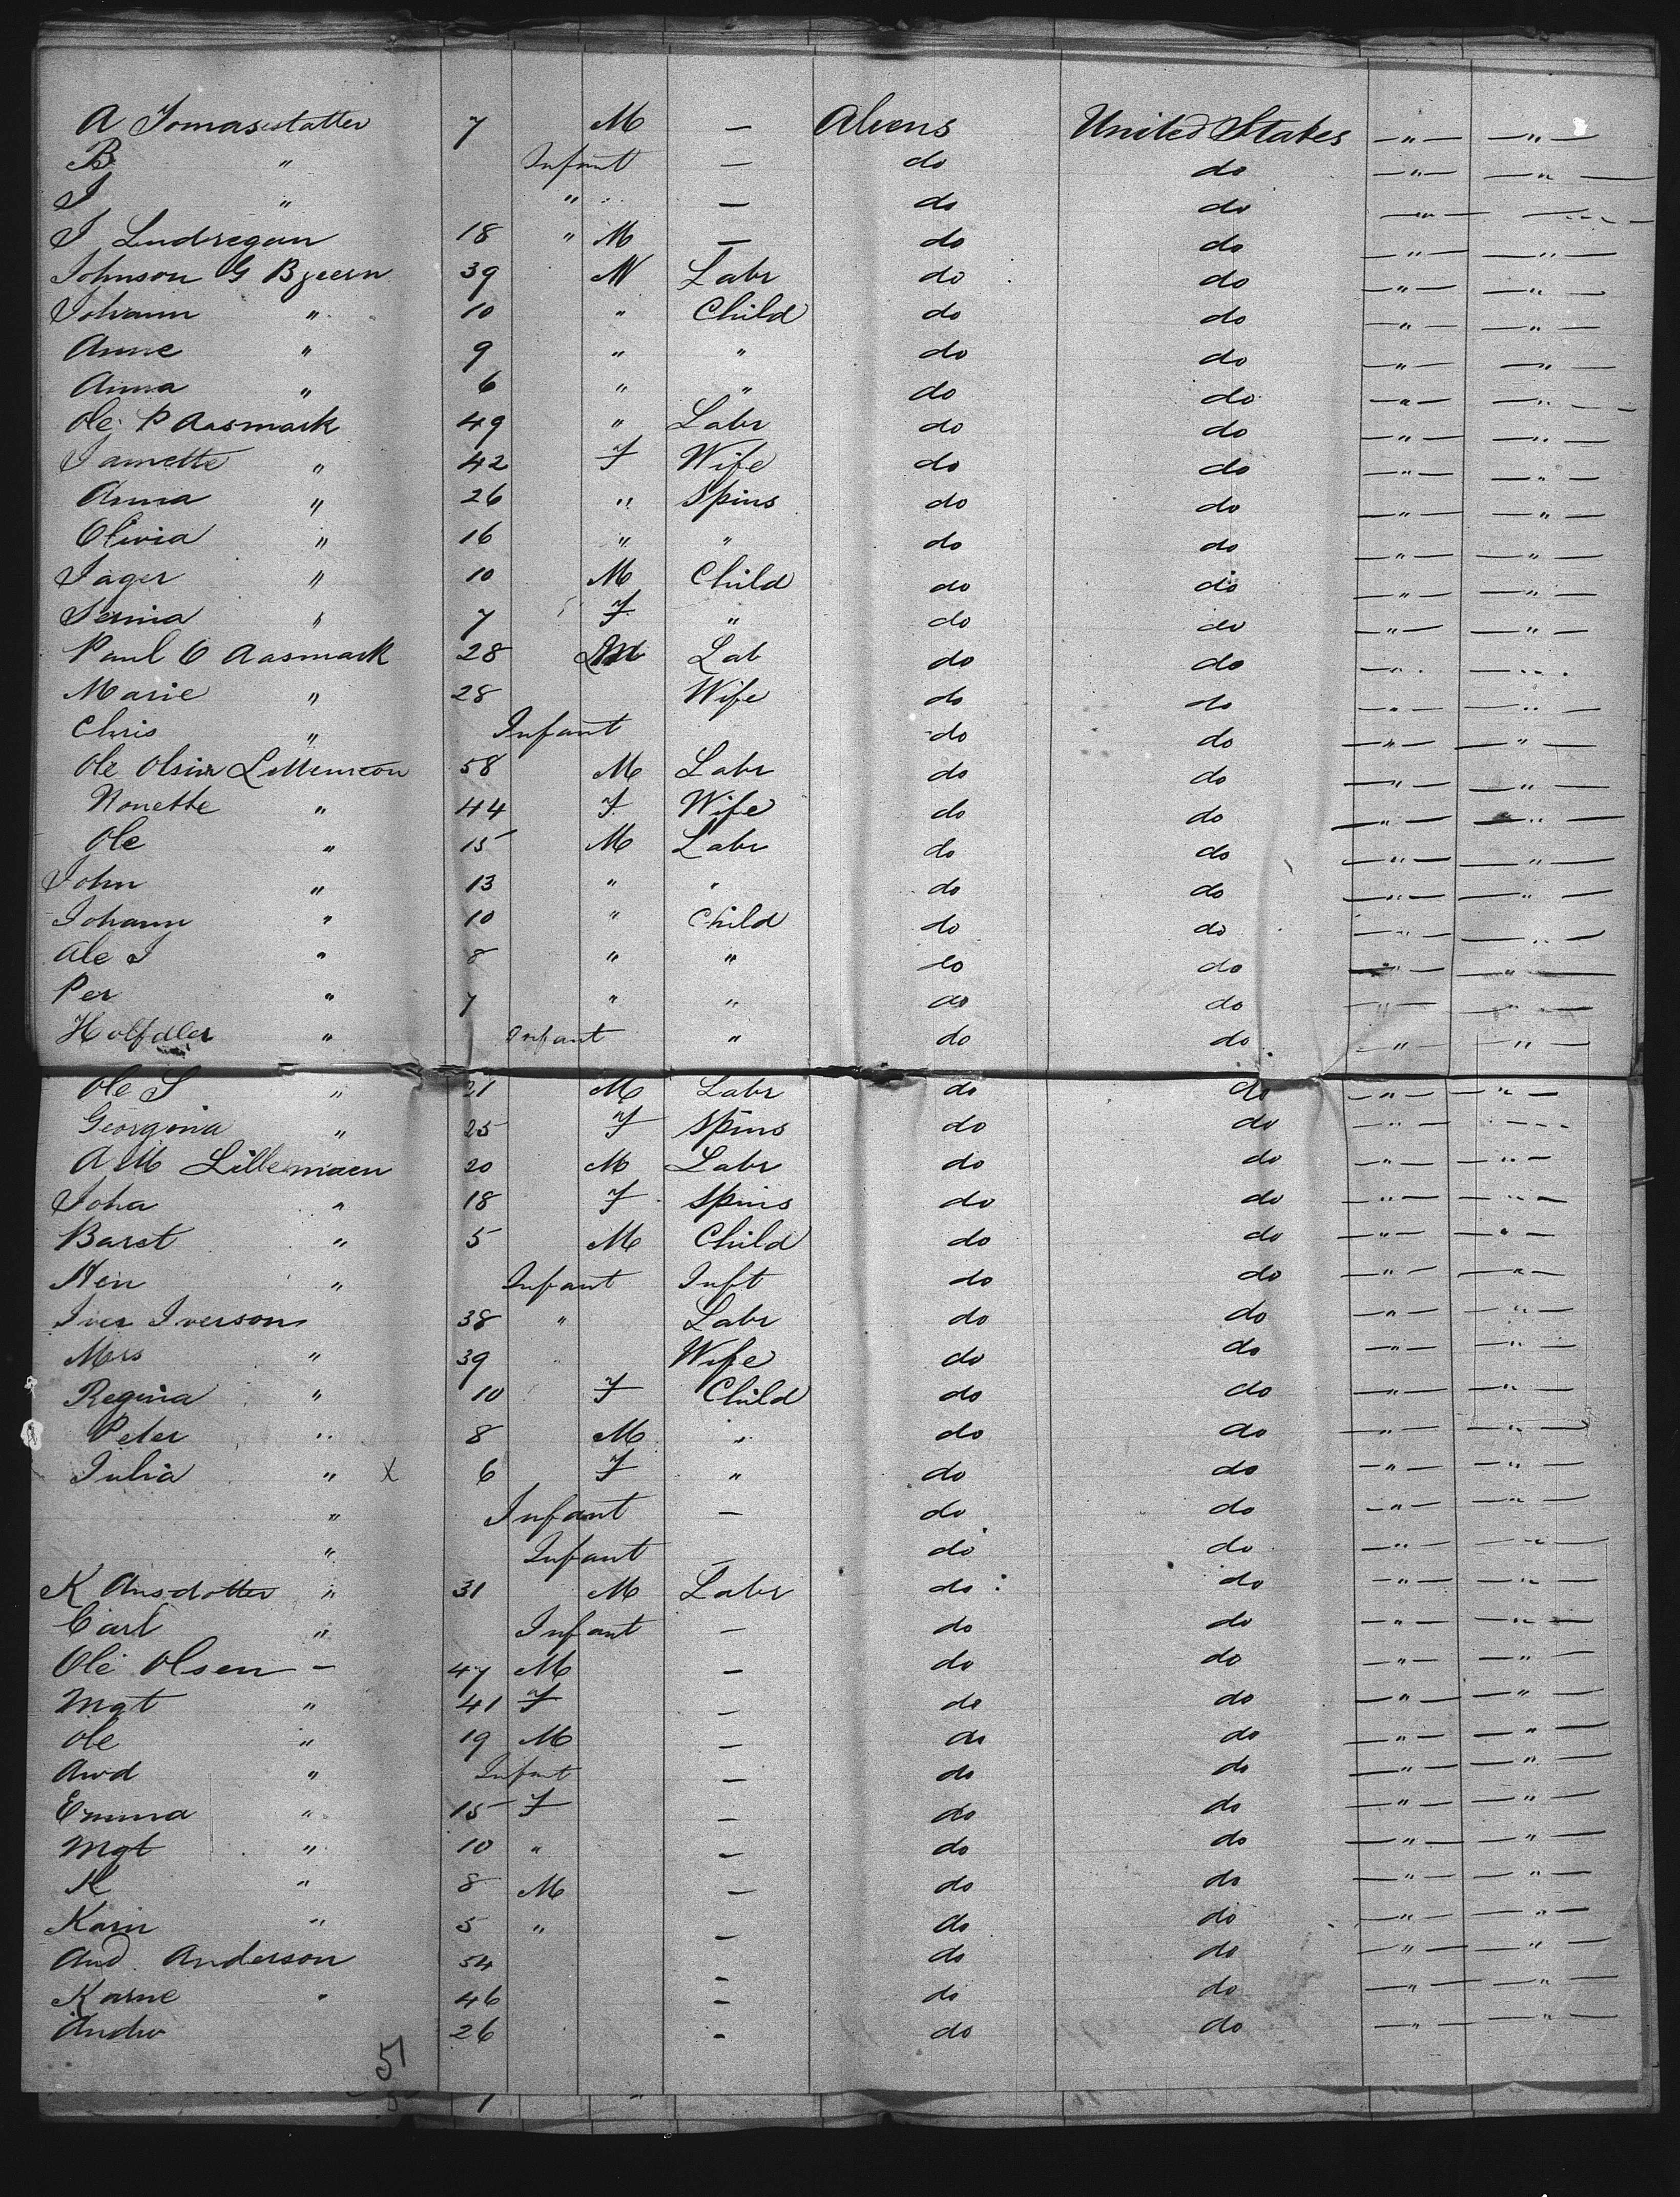 A Tomasstatter 7 M — Aliens United States — " — — " —
B " Infant — do do — " — — " —
J " " — do do — " — — " —
J Lindregen 18 " M — do do — " — — " —
Johnson G Bjeern 39 M Labr do do — " — — " —
Johann " 10 " Child do do — " — — " —
Anne " 9 " " do do — " — — " —
Anna " 6 " " do do — " — — " —
Ole P Aasmark 49 " Labr do do — " — — " —
Jamette " 42 F Wife do do — " — — " —
Anna " 26 " Spins do do — " — — " —
Olivia " 16 " " do do — " — — " —
Jager " 10 M Child do do — " — — " —
Serina " 7 F " do do — " — — " —
Paul O Aasmark 28 M Lab do do — " — — " —
Marie " 28 Wife do do — " — — " —
Chris " Infant do do — " — — " —
Ole Olsen 58 M Labr do do — " — — " —
Nonette " 44 F Wife do do — " — — " —
Ole " 15 M Labr do do — " — — " —
John " 13 " " do do — " — — " —
Johann " 10 " Child do do — " — — " —
Ole J " 8 " " do do — " — — " —
Per " 7 " " do do — " — — " —
Holfdler " Infant " do do — " — — " —
Ole S " 21 M Labr do do — " — — " —
Georgina " 25 F Spins do do — " — — " —
A M Lillemoen 20 M Labr do do — " — — " —
Joha " 18 F Spins do do — " — — " —
Baret " 5 M Child do do — " — — " —
Hen " Infant Inft do do — " — — " —
Iver Iverson 38 " Labr do do — " — — " —
Mrs " 39 Wife do do — " — — " —
Regina " 10 F Child do do — " — — " —
Peter " 8 M " do do — " — — " —
Julia " x 6 F " do do — " — — " —
" Infant — do do — " — — " —
" Infant — do do — " — — " —
K Ansdotter " 31 M Labr do do — " — — " —
Carl " Infant — do do — " — — " —
Ole Olsen — 47 M — do do — " — — " —
Mgt " 41 F — do do — " — — " —
Ole " 19 M — do do — " — — " —
And " Infant — do do — " — — " —
Emma " 15 F — do do — " — — " —
Mgt " 10 " — do do — " — — " —
K " 8 M — do do — " — — " —
Karin " 5 " — do do — " — — " —
And. Anderson 54 — do do — " — — " —
Karne " 46 — do do — " — — " —
Andw 26 — do do — " — — " —
51